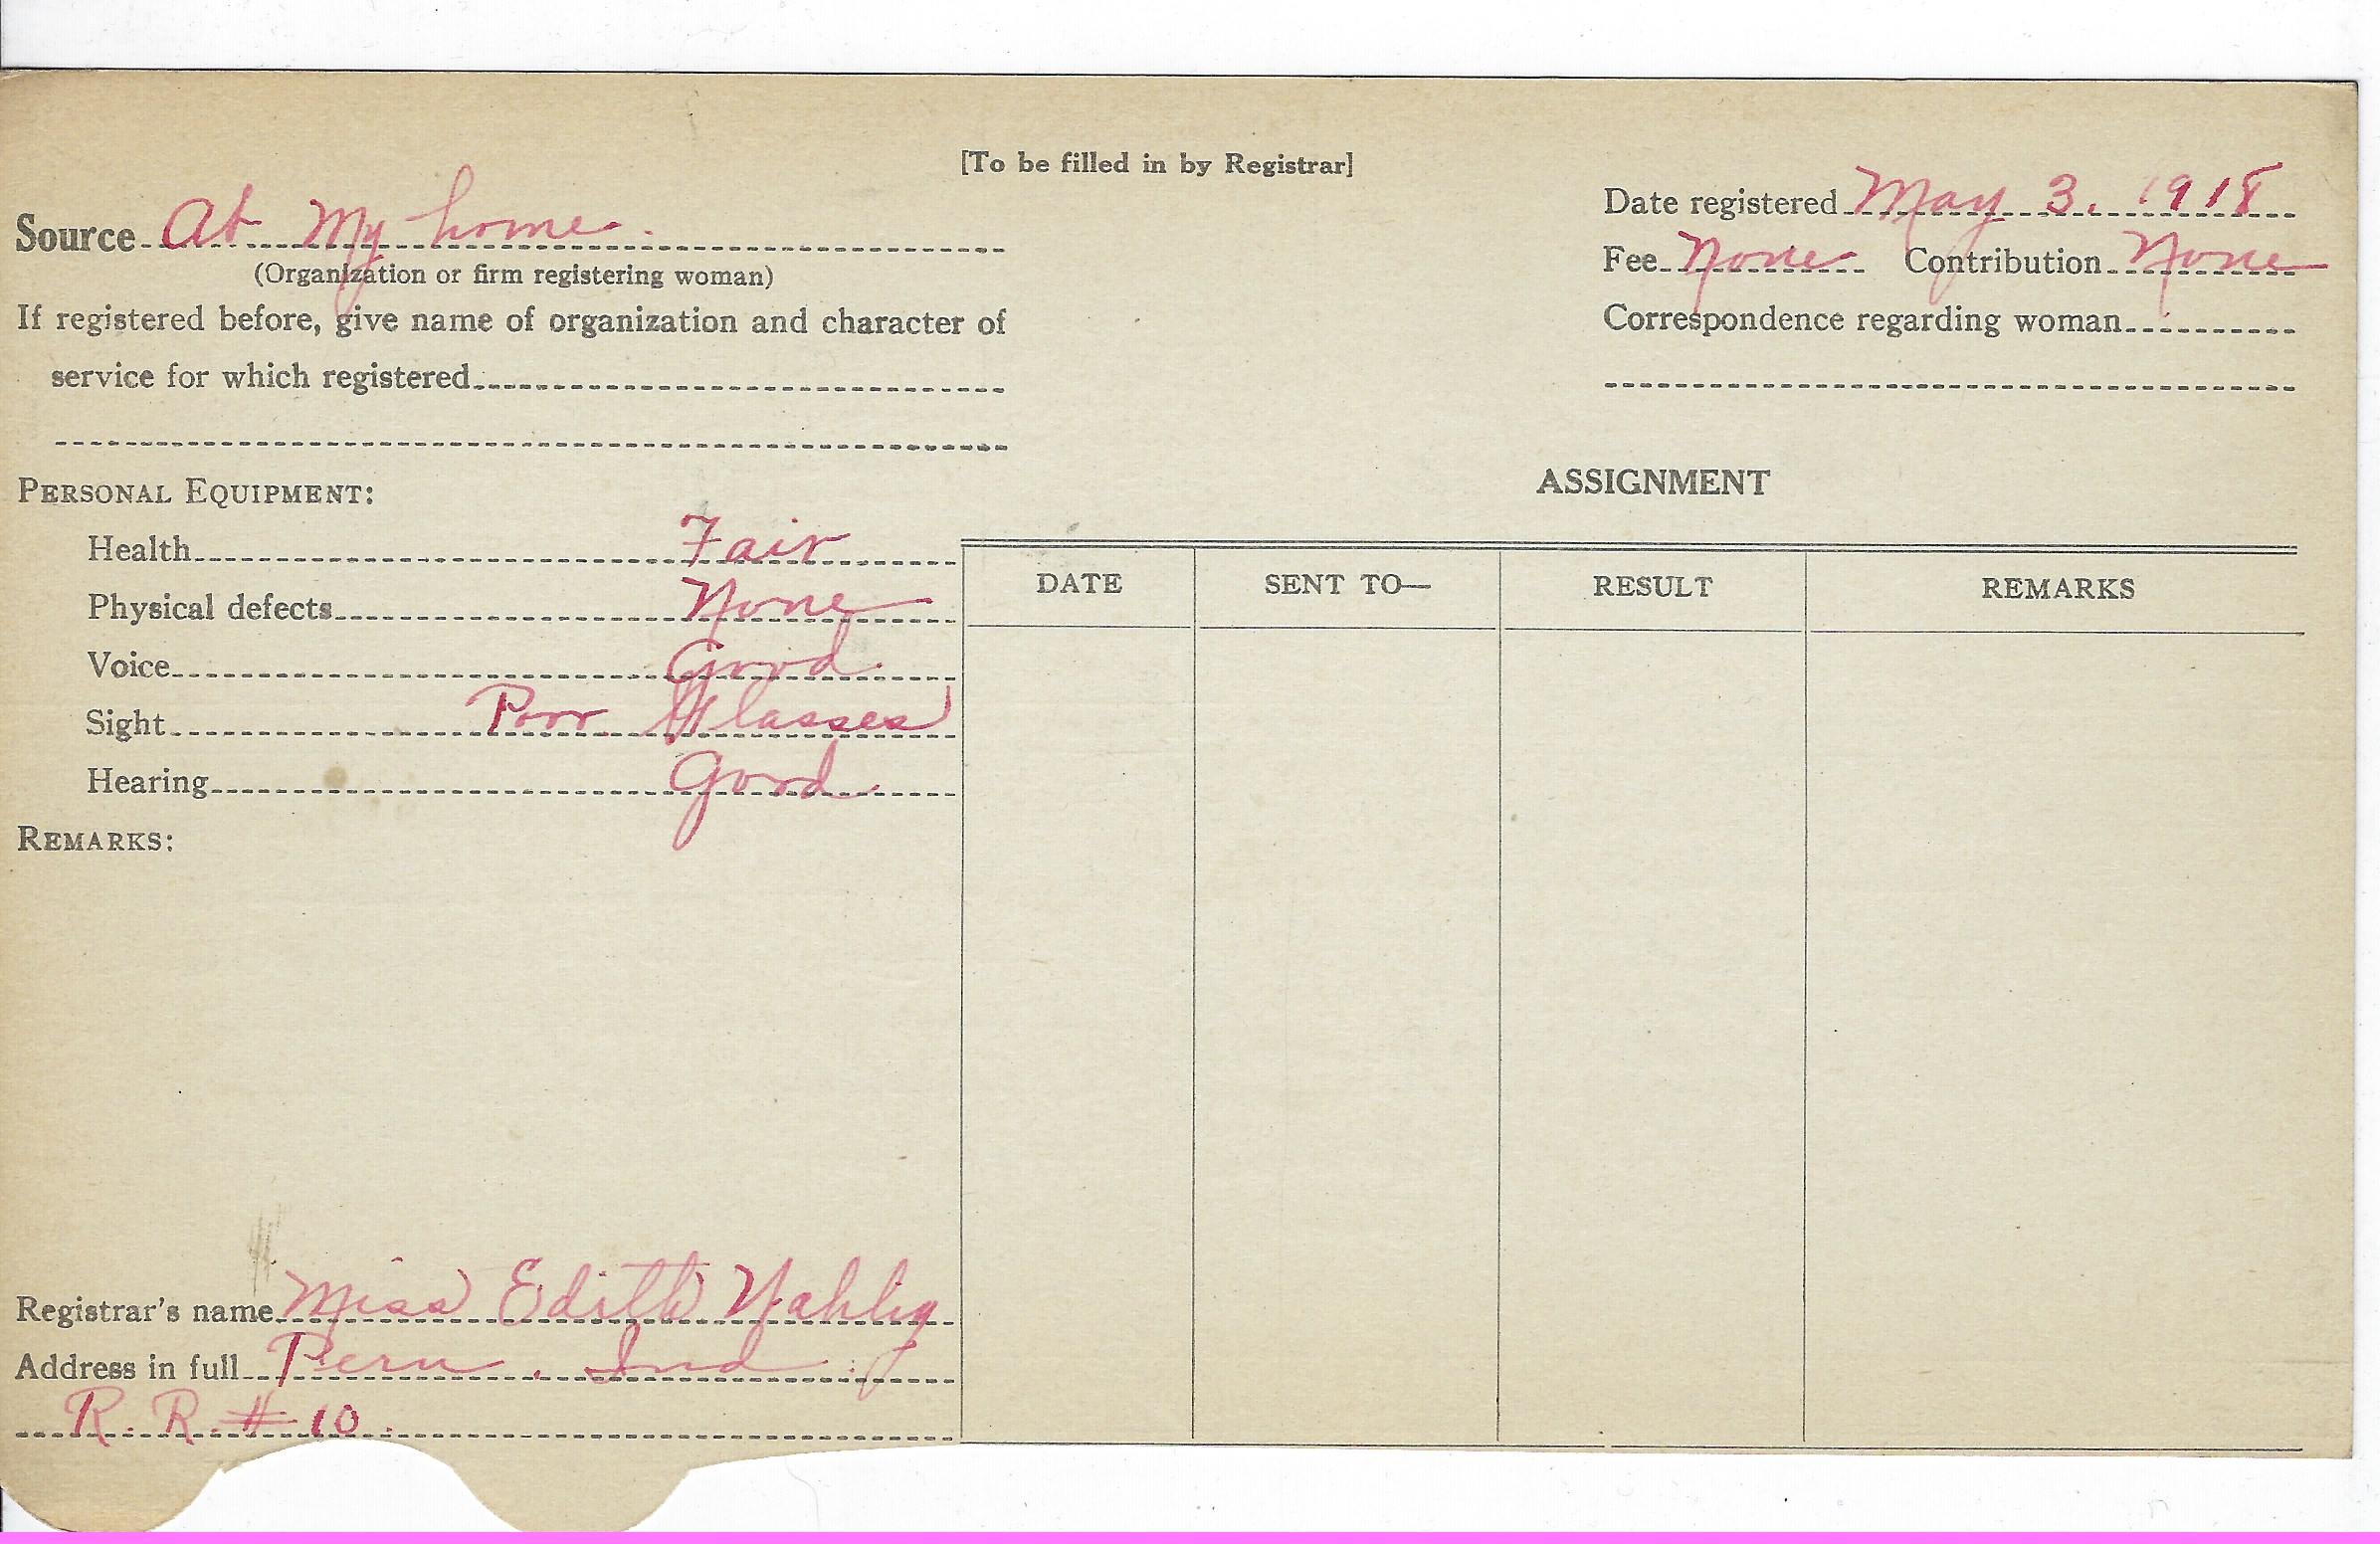 [To be filled in by Registrar]
Source At My home.
(Organization or firm registering woman)
If registered before, give name of organization and character of
service for which registered
Date registered May 3. 1918
Fee None Contribution None
Correspondence regarding woman
PERSONAL EQUIPMENT:
Health Fair
Physical defects None
Voice Good.
Sight Poor. Glasses
Hearing Good
REMARKS:
Registrar's name Miss Edith
Address in full Peru. Ind
R. R. # 10.
ASSIGNMENT
DATE SENT TO— RESULT REMARKS